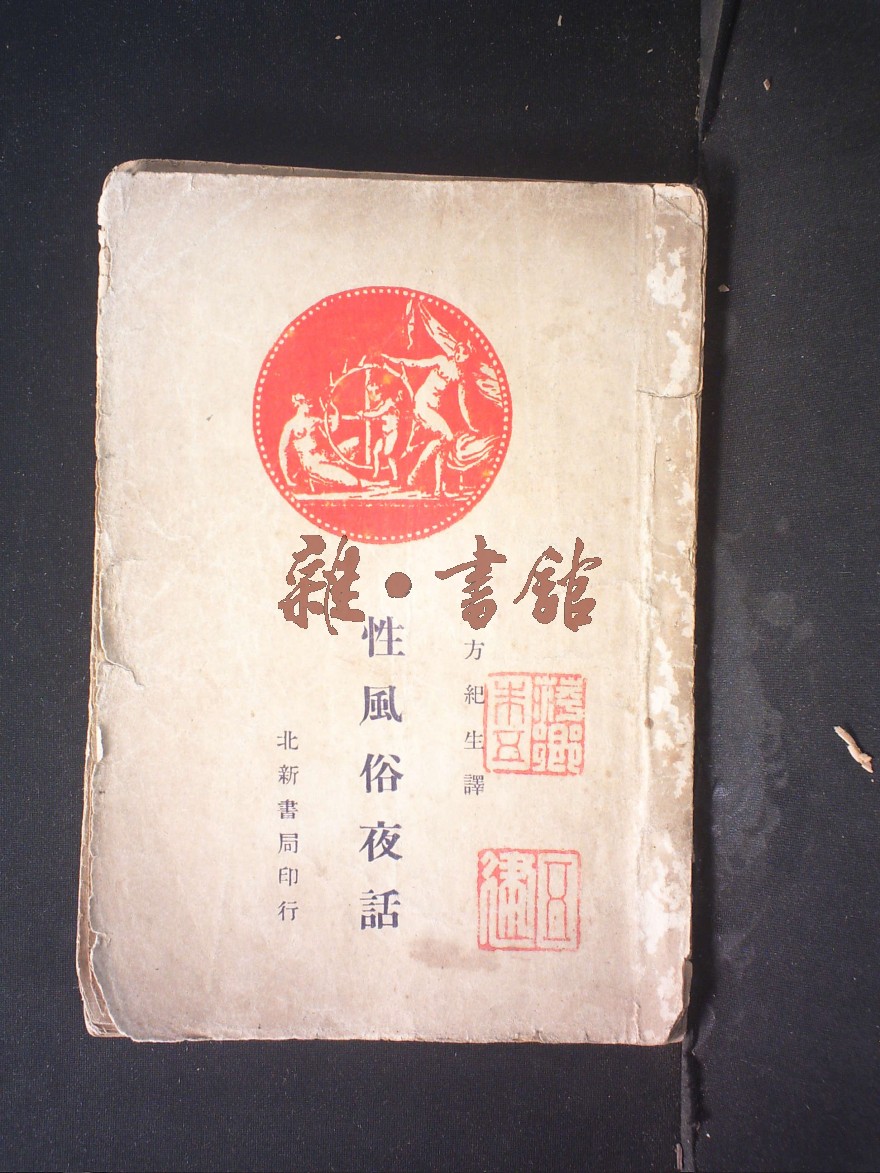 雜·書館
方紀生譯
性風俗夜話
北新書局印行